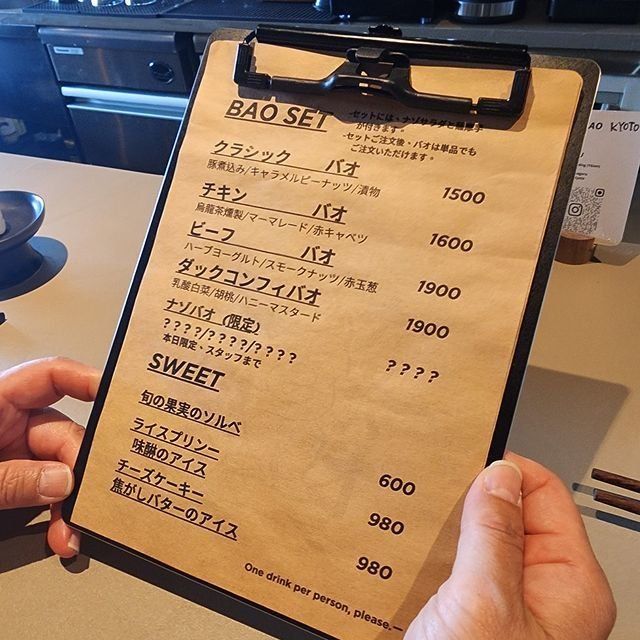 BAO SET
-セットには、ナゾサラダと
が付きます。
-セットご注文後、バオは単品でも
ご注文いただけます。
クラシック　バオ
豚煮込み/キャラメルピーナッツ/漬物
1500
チキン　バオ
烏龍茶燻製/マーマレード/赤キャベツ
1600
ビーフ　バオ
ハーブヨーグルト/スモークナッツ/赤玉葱
1900
ダックコンフィバオ
乳酸白菜/胡桃/ハニーマスタード
1900
ナゾバオ（限定）
????/????/????
本日限定、スタッフまで
????
SWEET
旬の果実のソルベ
600
ライスプリンー
味醂のアイス
980
チーズケーキー
焦がしバターのアイス
980
One drink per person, please.—
AO KYOTO